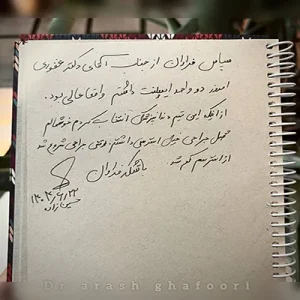 سپاس فراوان از جناب آقای دکتر غفوری
امروز دو واحد ایمپلنت داشتم واقعا عالی بود.
از اینکه با این تیم و نازنین آشنا شدم خوشحالم
جراحی خیلی استرس داشتم، وقتی جراحی شروع شد
از استرسم کم شد.
با تشکر فراوان
۱۴۰۴/۶/۲۲
Dr arash ghafoori